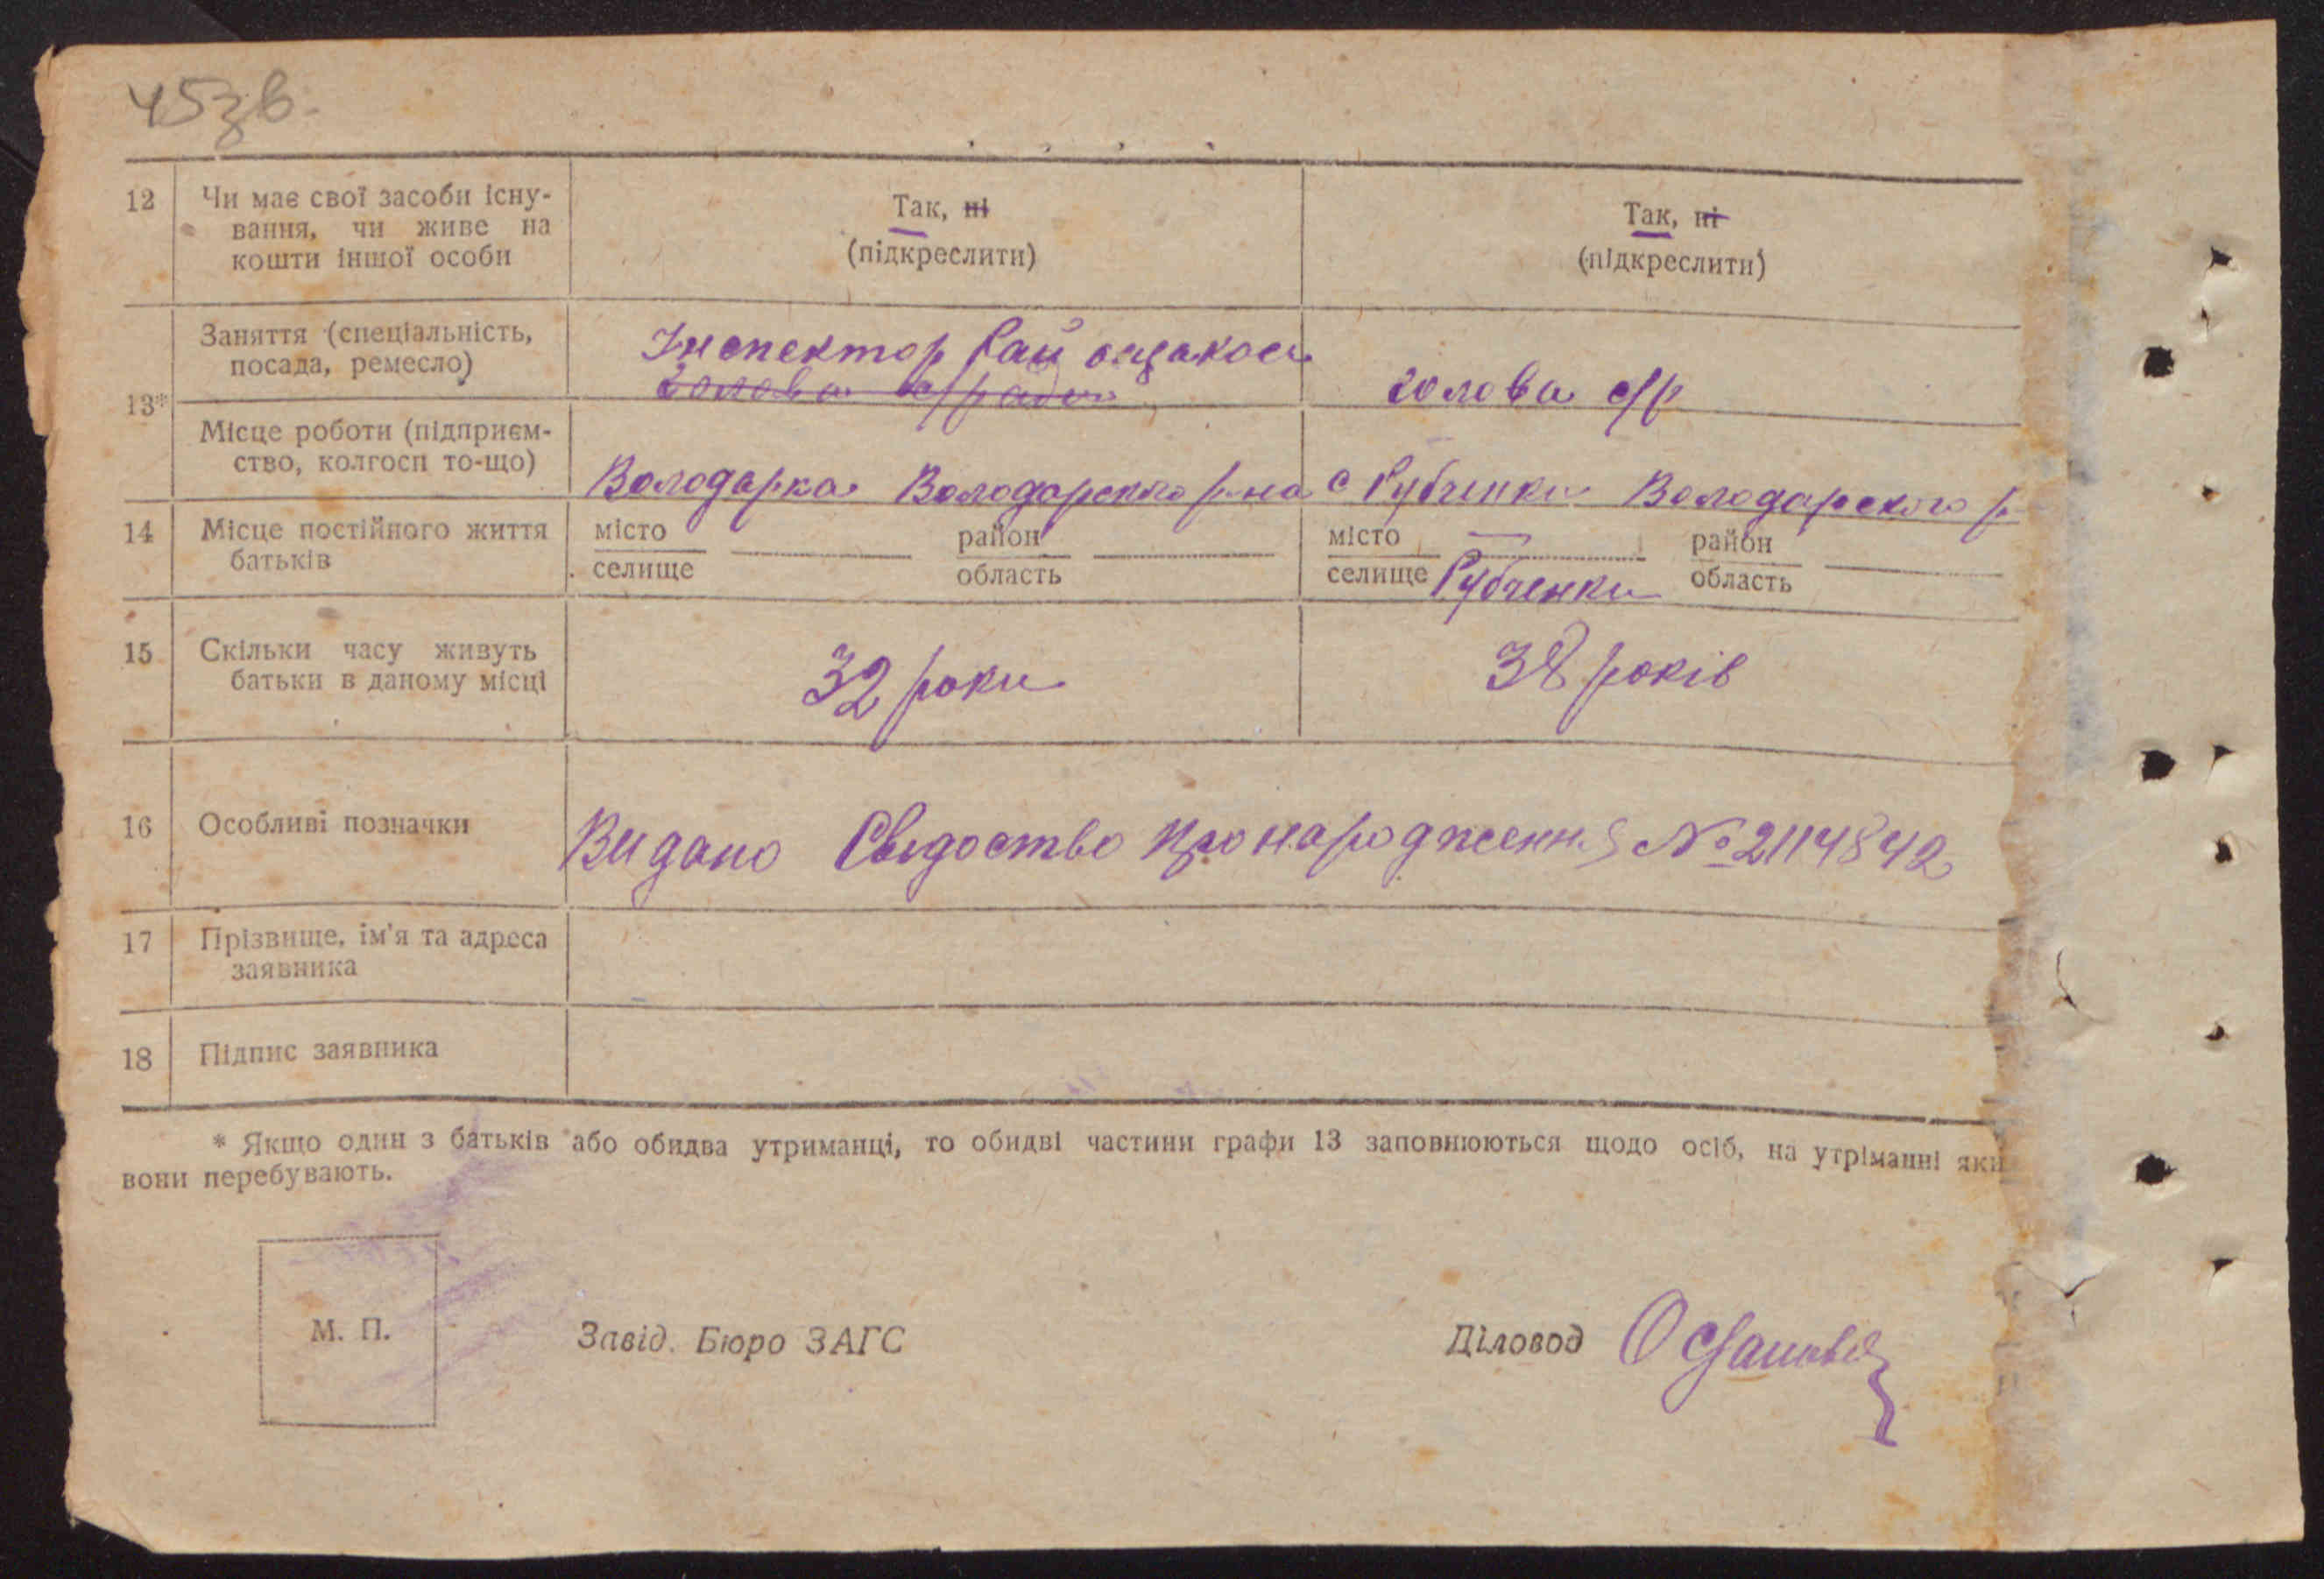 45зв.
12 Чи має свої засоби існу-
вання, чи живе на
кошти іншої особи
Так, ні
(підкреслити)
Так, ні
(підкреслити)
13*
Заняття (спеціальність,
посада, ремесло)
Інспектор Рай ощадкаси
голова с/ради
голова с/р
Місце роботи (підприєм-
ство, колгосп то-що)
Володарка Володарского р-на
с Рубченки Володарского р-
14 Місце постійного життя
батьків
місто район
селище область
місто район
селище Рубченки область
15 Скільки часу живуть
батьки в даному місці
32 роки
38 років
16 Особливі позначки
Видано Свідоство про народження №2114842
17 Прізвище, ім'я та адреса
заявника
18 Підпис заявника
* Якщо один з батьків або обидва утриманці, то обидві частини графи 13 заповнюються щодо осіб, на утріманні яки
вони перебувають.
М. П.
Завід. Бюро ЗАГС
Діловод